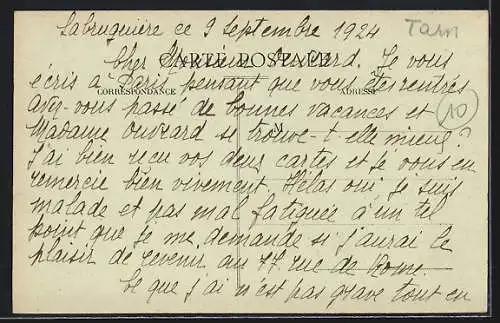 Labruguière ce 9 septembre 1924
Tarn
CARTE POSTALE
Cher Monsieur Ouvrard. Je vous
écris à Paris pensant que vous êtes rentrés
CORRESPONDANCE
ADRESSE
Avez-vous passé de bonnes vacances et
10
Madame Ouvrard se trouve-t-elle mieux?
J'ai bien reçu vos deux cartes et je vous en
remercie bien vivement. Hélas oui je suis
malade et pas mal fatiguée à un tel
point que je me demande si j'aurai le
plaisir de revenir au 77 rue de Rome.
Ce que j'ai n'est pas grave tout en